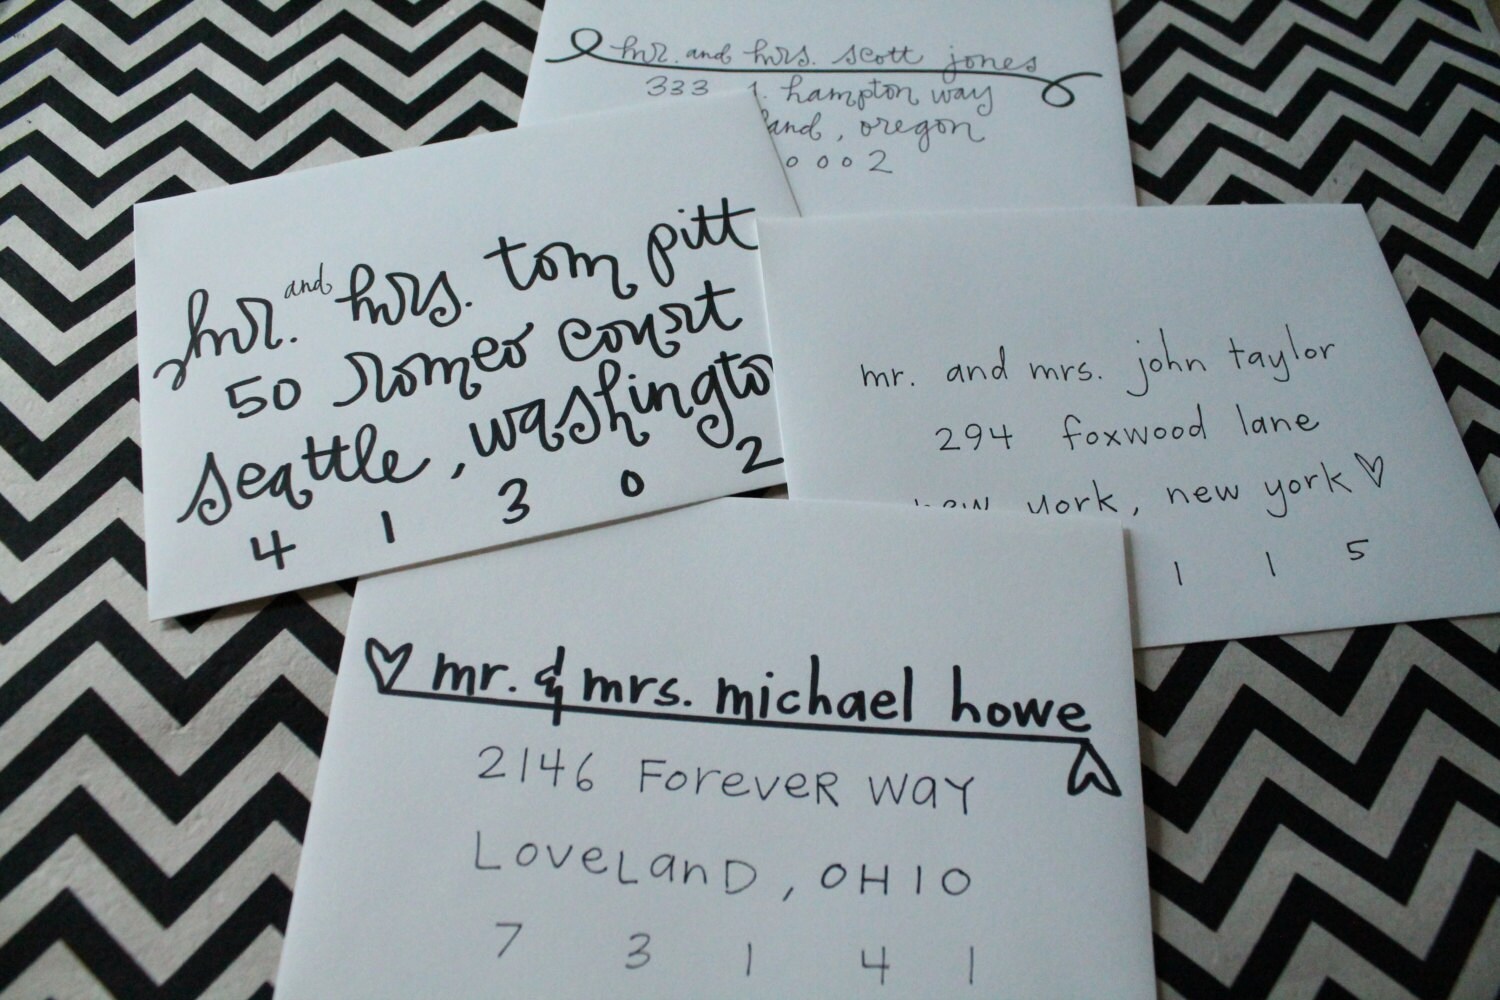 mr. and mrs. scott jones
333 hampton way
oregon
0 0 0 2
mr. and mrs. tom pitt
50 romeo court
seattle, washingto
4 1 3 0 2
mr. and mrs. john taylor
294 foxwood lane
new york, new york ♡
1 1 5
♡ mr. & mrs. michael howe
2146 ForeveR way
LoveLanD, OHIO
7 3 1 4 1